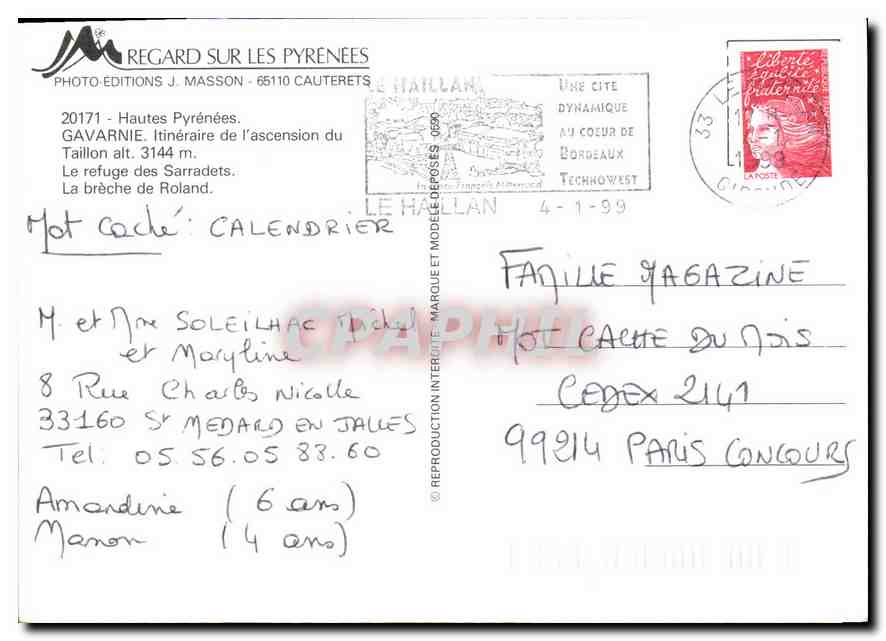 REGARD SUR LES PYRÉNÉES
PHOTO-ÉDITIONS J. MASSON - 65110 CAUTERETS
20171 - Hautes Pyrénées.
GAVARNIE. Itinéraire de l'ascension du
Taillon alt. 3144 m.
Le refuge des Sarradets.
La brèche de Roland.
LE HAILLAN
UNE CITE
DYNAMIQUE
AU COEUR DE
BORDEAUX
TECHNOWEST
LE HAILLAN 4-1-99
33 LE
1999
GIRONDE
liberté
égalité
fraternité
LA POSTE
Mot Caché : CALENDRIER
M. et Mme SOLEILHAC Michel
et Maryline
8 Rue Charles Nicolle
33160 St MEDARD EN JALLES
Tel: 05.56.05 83.60
Amandine (6 ans)
Manon (4 ans)
© REPRODUCTION INTERDITE - MARQUE ET MODÈLE DÉPOSÉS 0690
CPAPHIL
FAMILLE MAGAZINE
MOT CACHE DU MOIS
CEDEX 2141
99214 PARIS CONCOURS